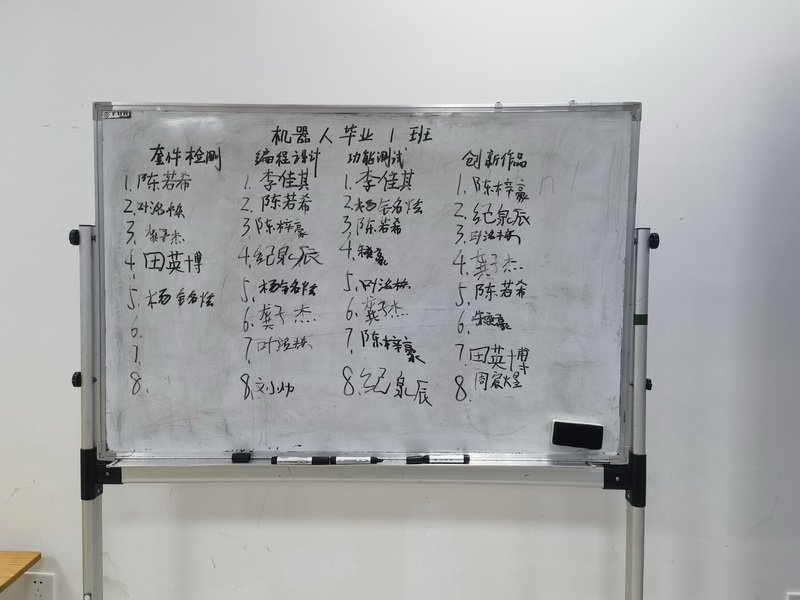 机器人毕业1班
套件检测
1.陈若希
2.叶治林
3.龚子杰
4.田英博
5.杨铭泫
6.
7.
8.
编程设计
1.李佳其
2.陈若希
3.陈梓豪
4.纪泉辰
5.
6.龚子杰
7.
8.刘小帅
功能测试
1.李佳其
2.
3.陈若希
4.
5.
6.龚子杰
7.陈梓豪
8.纪泉辰
创新作品
1.陈梓豪
2.纪泉辰
3.
4.龚子杰
5.陈若希
6.
7.田英博
8.周宸煜